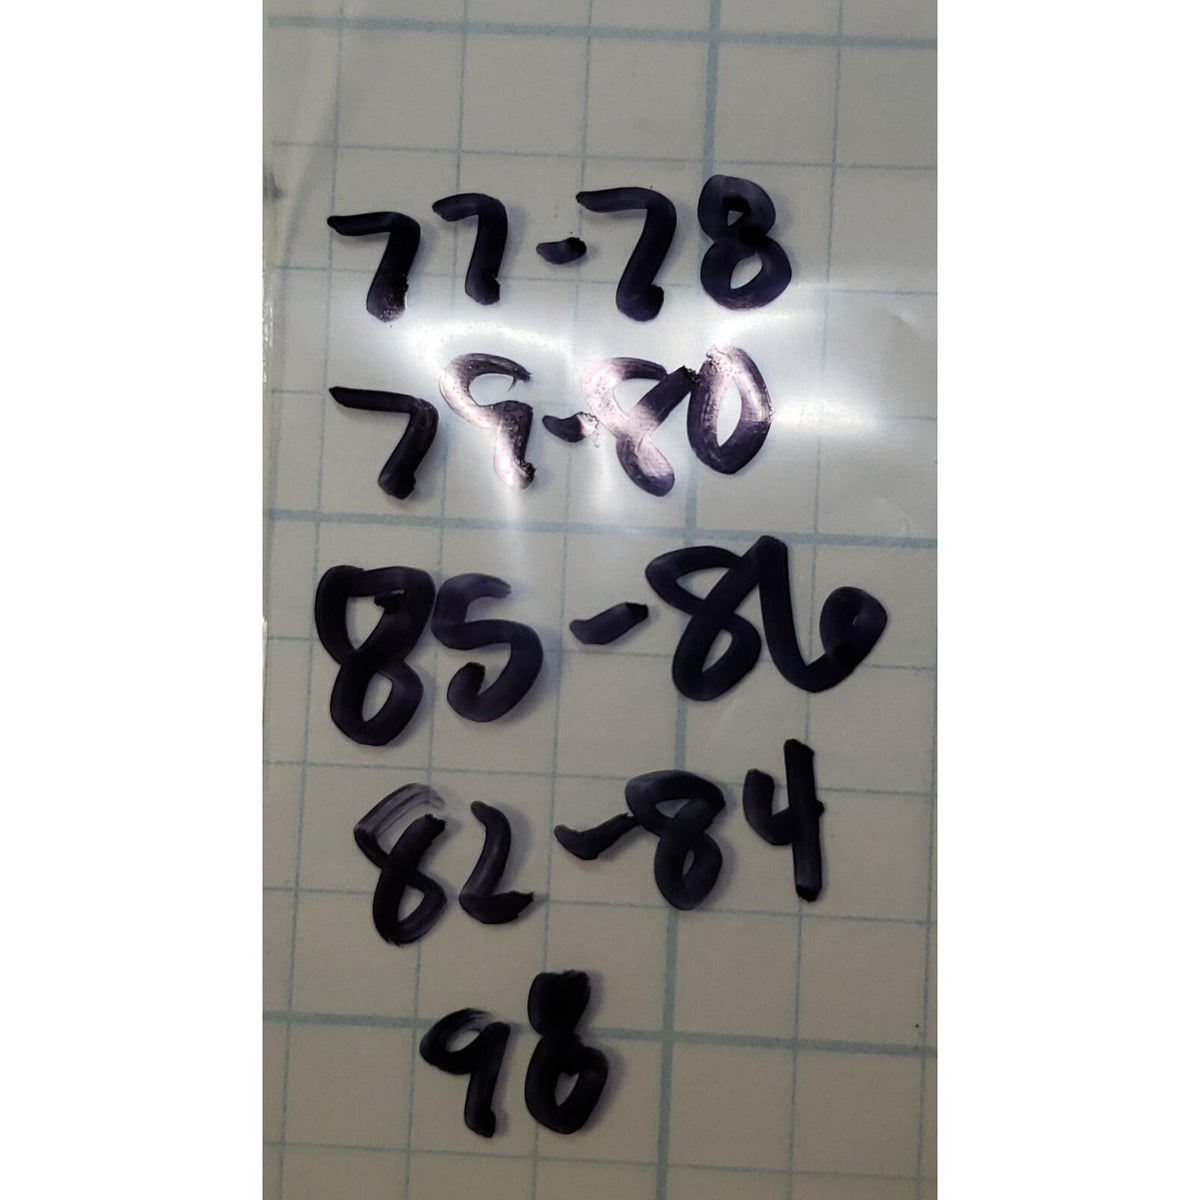 77-78
79-80
85-86
82-84
98